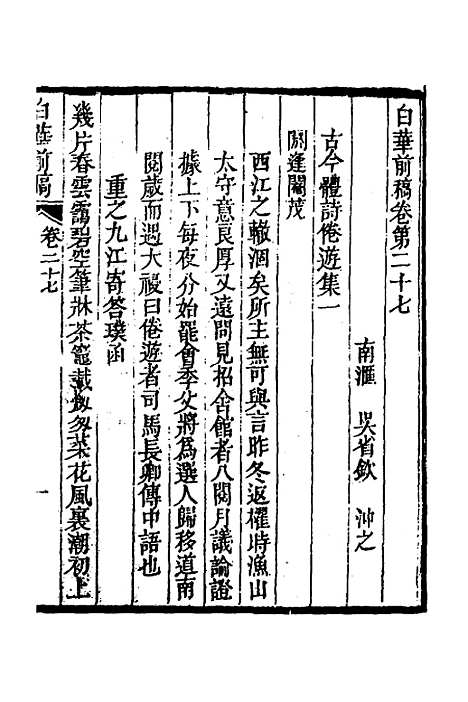 白華前稿卷第二十七
南滙　吳省欽　沖之
古今體詩倦遊集一
閼逢閹茂
西江之轍涸矣所主無可與言昨冬返櫂時漁山
太守意良厚又遠問見招舍館者八閱月議論證
據上下每夜分始罷會季父將爲選人歸移道南
閱歲而遇大祲曰倦遊者司馬長卿傳中語也
重之九江寄答璞函
幾片春雲靄碧空筆牀茶竈載怱怱菜花風裏潮初上
白華前稿
卷二十七
一